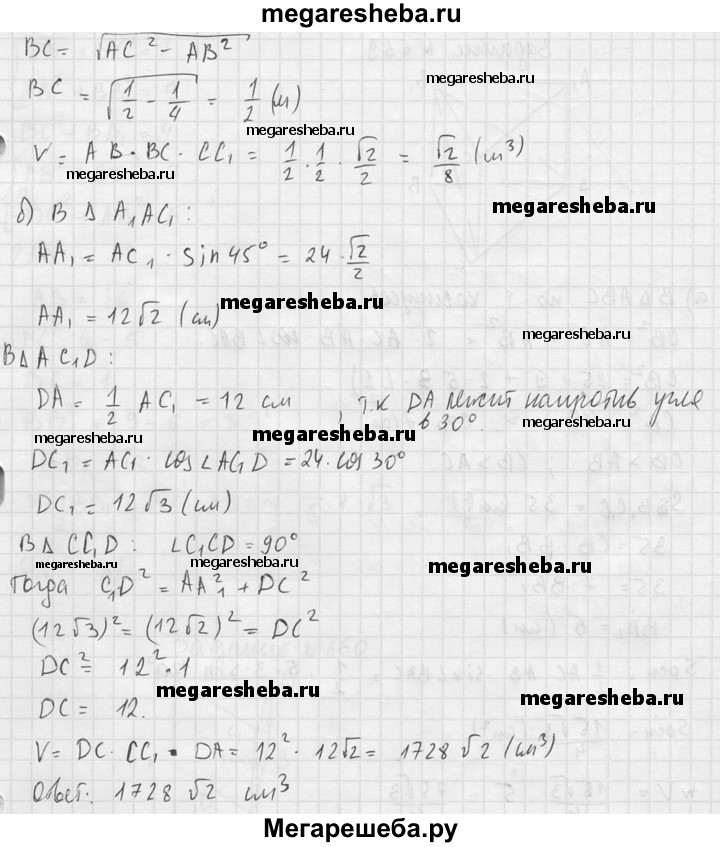 megaresheba.ru
BC = √(AC² - AB²)
megaresheba.ru
BC = √(1/2 - 1/4) = 1/2 (м)
megaresheba.ru
V = AB · BC · CC₁ = 1/2 · 1/2 · √2/2 = √2/8 (м³)
megaresheba.ru
megaresheba.ru
б) В Δ A₁AC₁:
AA₁ = AC₁ · sin 45° = 24 · √2/2
megaresheba.ru
AA₁ = 12√2 (см)
В Δ AC₁D:
DA = 1/2 AC₁ = 12 см, т.к DA лежит напротив угла
в 30°.
megaresheba.ru
megaresheba.ru
megaresheba.ru
DC₁ = AC₁ · cos ∠AC₁D = 24 · cos 30°
DC₁ = 12√3 (см)
В Δ CC₁D: ∠C₁CD = 90°
megaresheba.ru
megaresheba.ru
megaresheba.ru
Тогда C₁D² = AA₁² + DC²
(12√3)² = (12√2)² = DC²
DC² = 12² · 1
megaresheba.ru
megaresheba.ru
DC = 12.
V = DC · CC₁ · DA = 12² · 12√2 = 1728√2 (см³)
Ответ: 1728√2 см³
Мегарешеба.ру